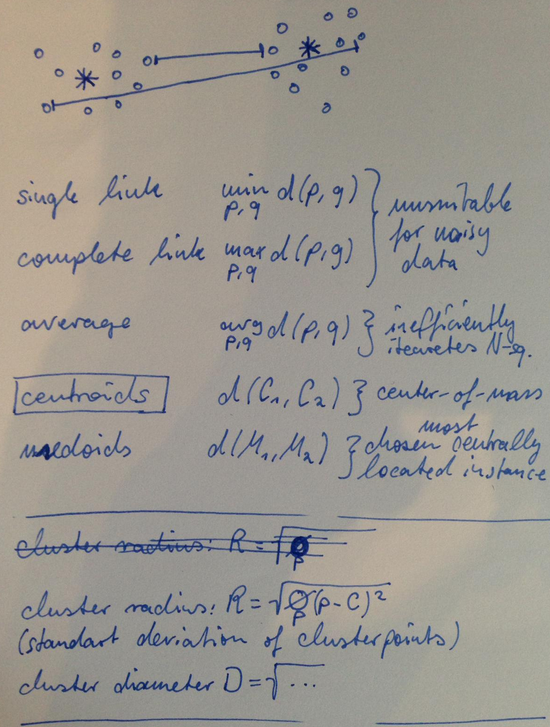 single link min d(p, q) } unsuitable
p, q for noisy
complete link max d(p, q) data
p, q
average avg d(p, q) } inefficiently
p, q iterates N-sq.
centroids d(C₁, C₂) } center-of-mass
medoids d(M₁, M₂) } chosen most centrally
located instance
cluster radius: R = √
p
cluster radius: R = √∅(p - C)²
p
(standart deviation of clusterpoints)
cluster diameter D = √...